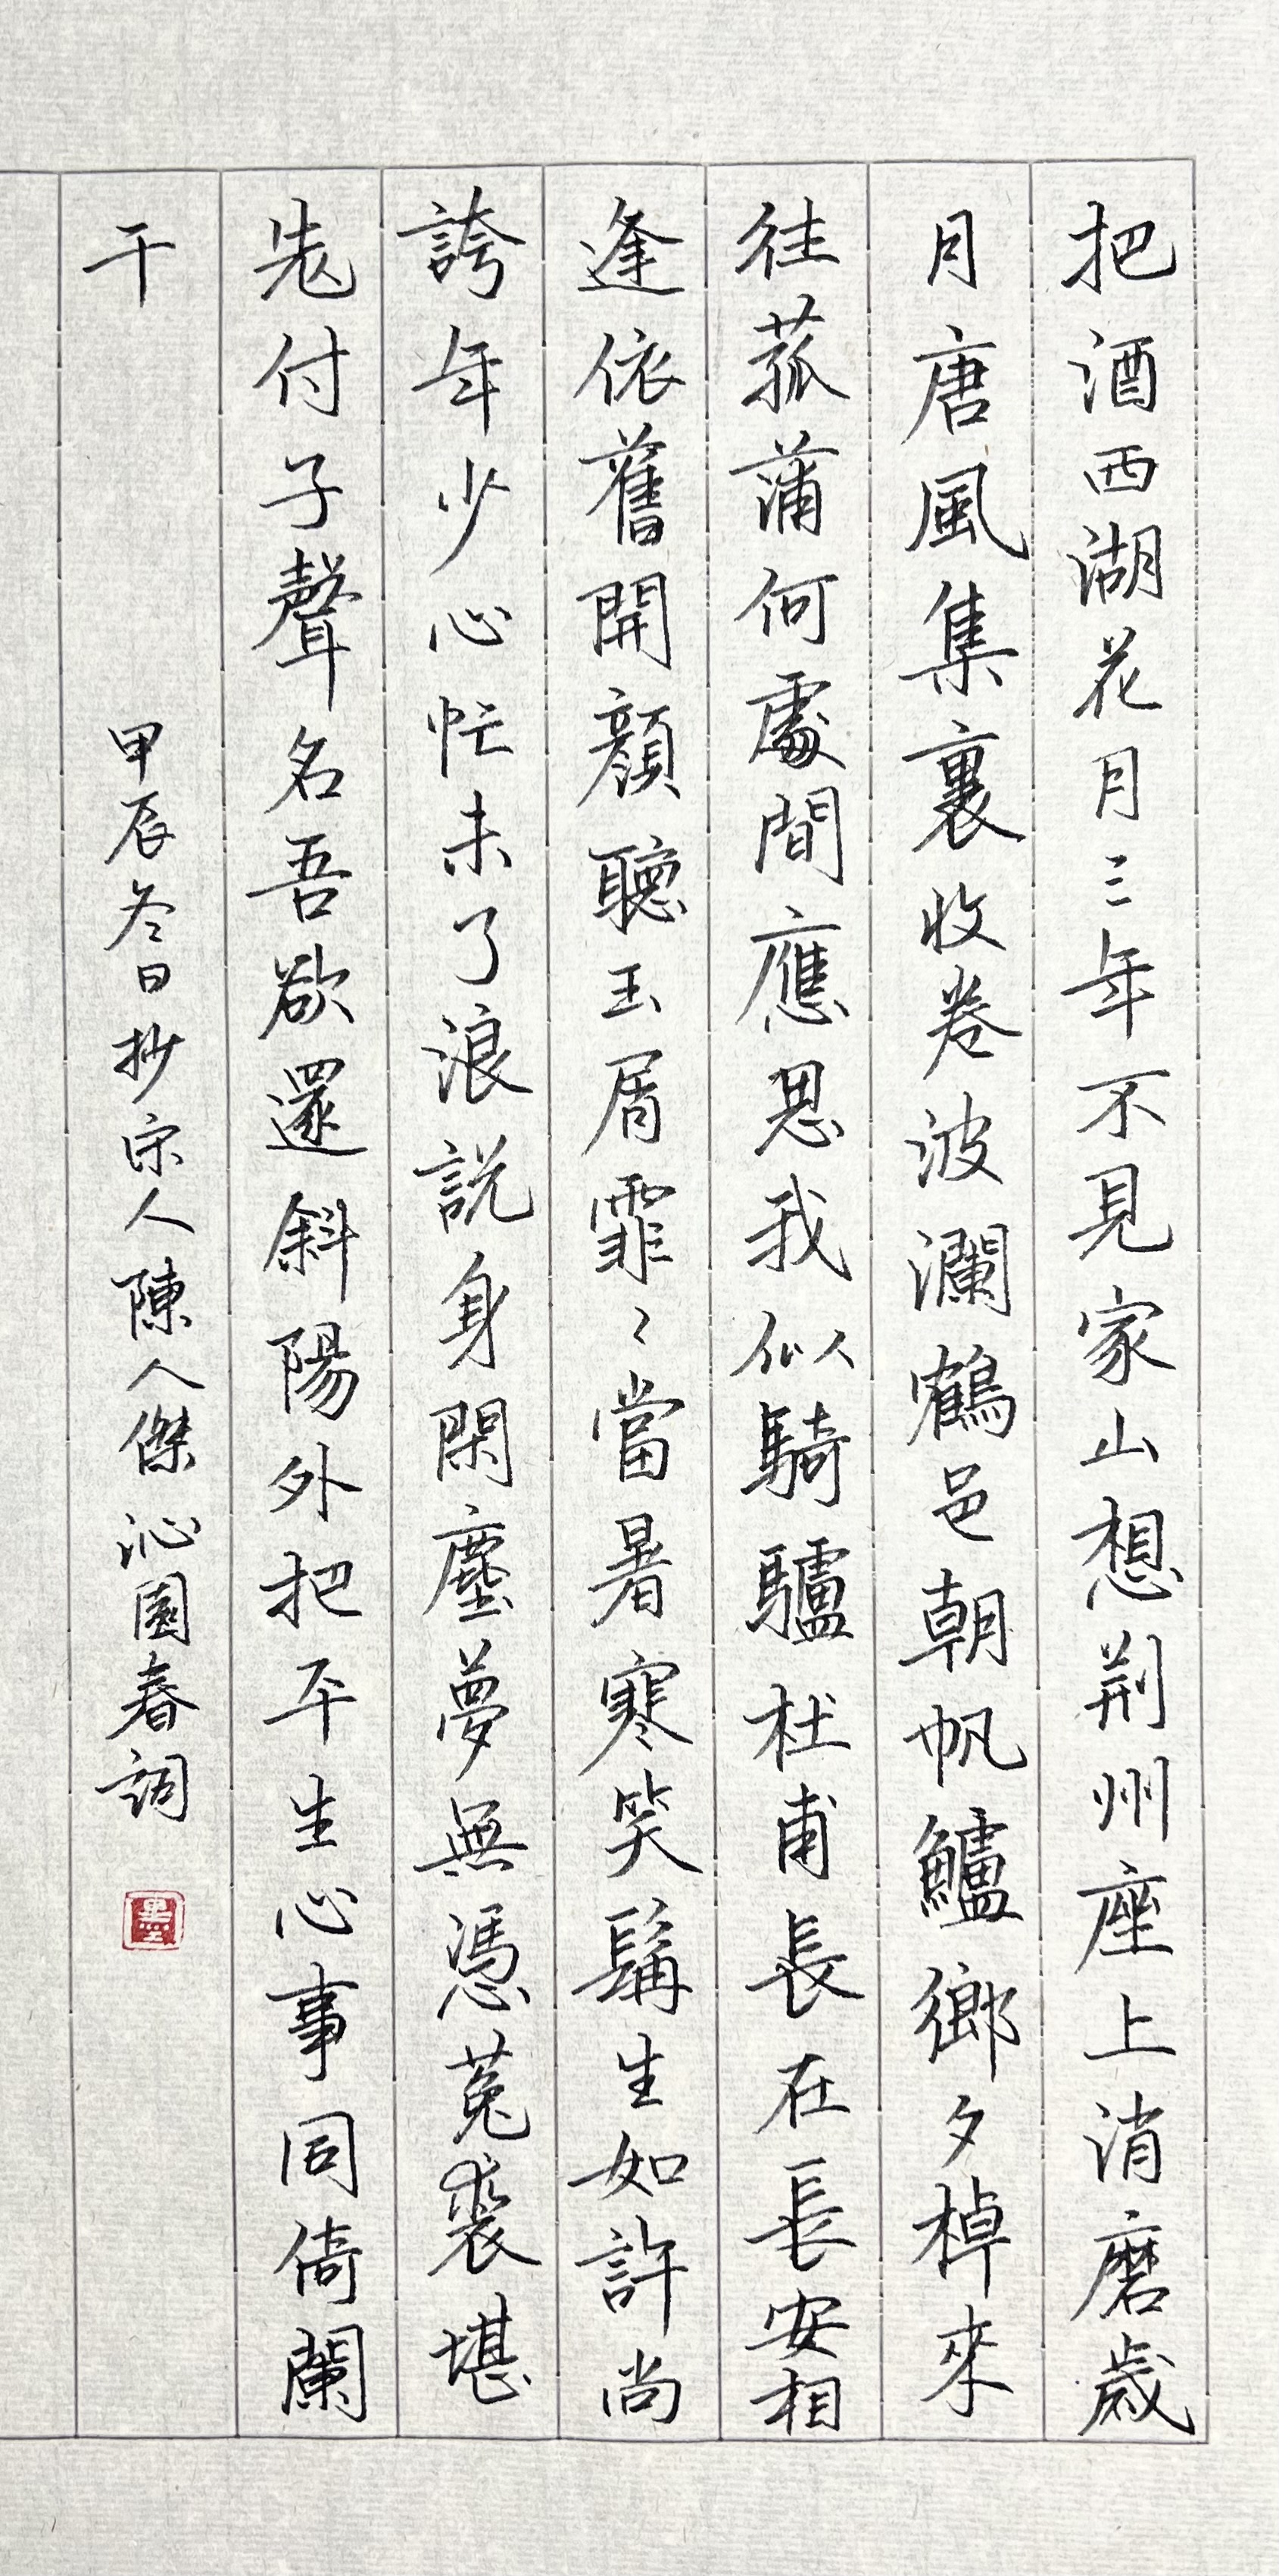 把酒西湖花月三年不見家山想荆州座上消磨歲
月唐風集裏收卷波瀾鶴邑朝帆鱸鄉夕棹來
往菰蒲何處間應思我似騎驢杜甫長在長安相
逢依舊開顏聽玉屑霏〻當暑寒笑鬅生如許尚
誇年少心忙未了浪説身閑塵夢無憑菟裘堪
老付子聲名吾欲還斜陽外把平生心事同倚闌
干
甲辰冬日抄宋人陳人傑沁園春詞
墨